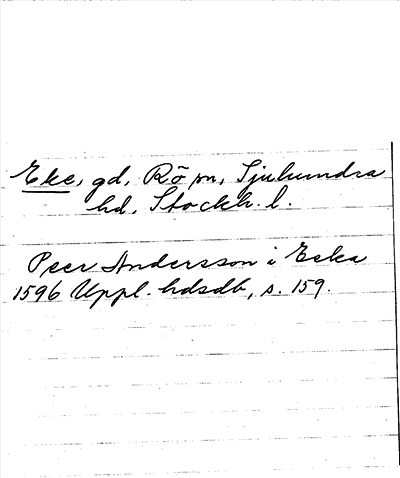 Eke, gd, Rö sn, Sjuhundra
hd, Stockh. l.
Peer Andersson i Eeka
1596 Uppl. hdsdb, s. 159.